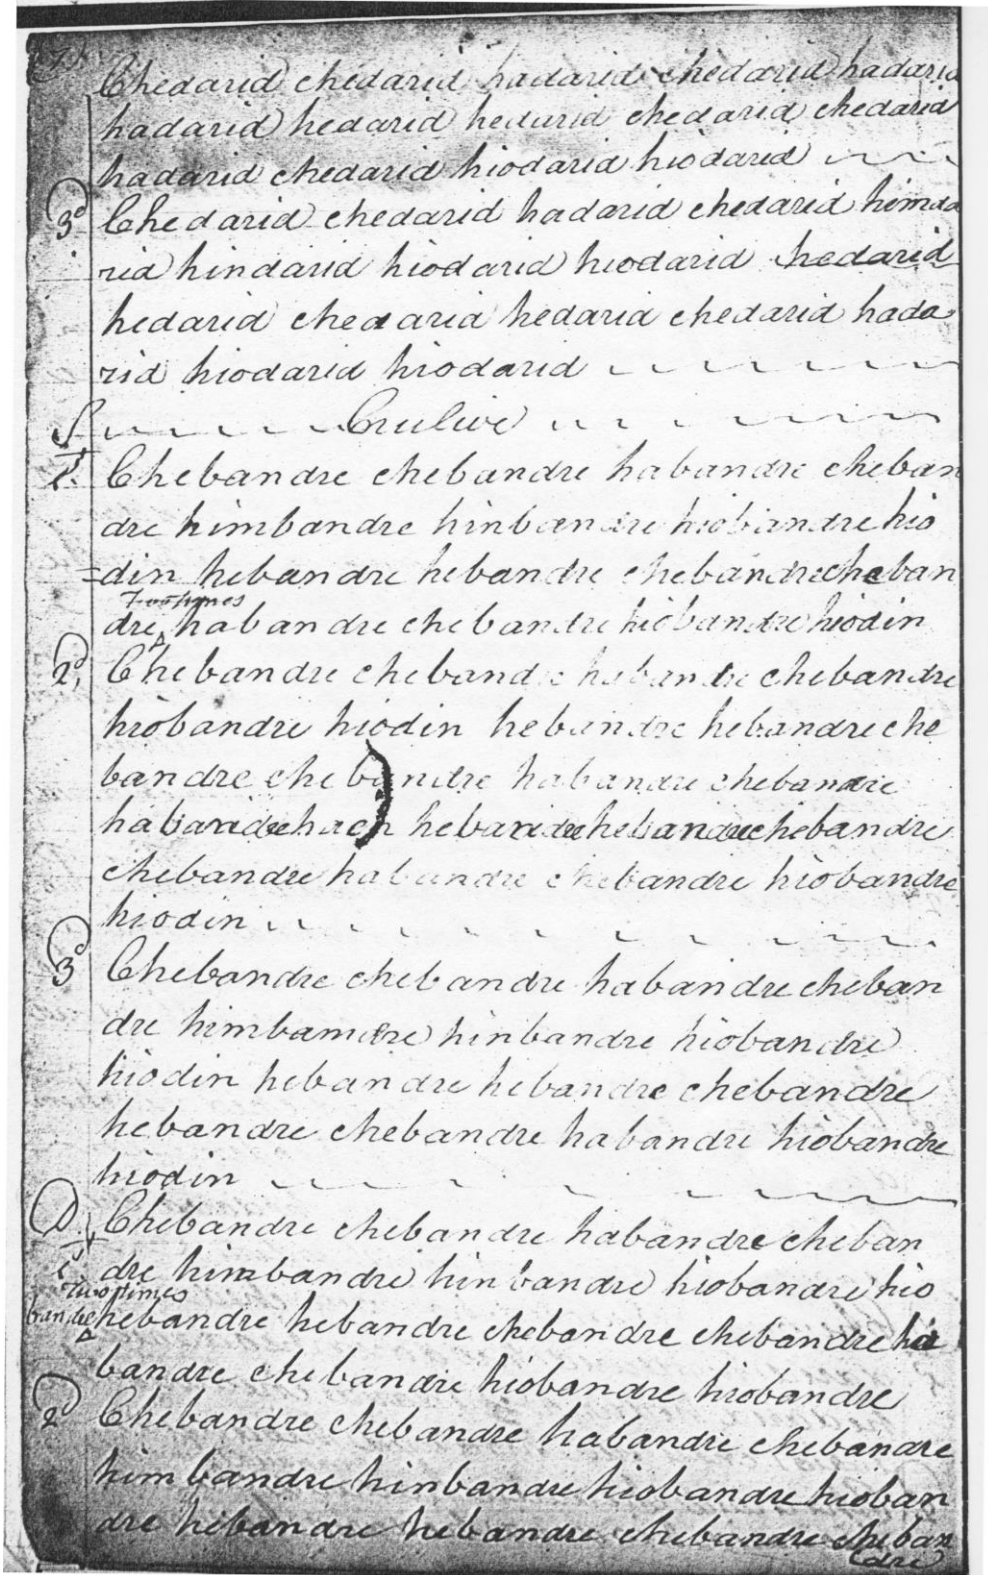 Chedarid chedarid hadarid chedarid hadarid
hadarid hedarid hedarid chedarid chedarid
hadarid chedarid hiodarid hiodarid
3d Chedarid chedarid hadarid chedarid himda
rid hindarid hiodarid hiodarid hedarid
hedarid chedarid hedarid chedarid hada
rid hiodarid hiodarid
S
1 Chebandre chebandre habandre cheban
dre himbandre hinbandre hiobandre hio
=din hebandre hebandre chebandre cheban
Two times
dre habandre chebandre hiobandre hiodin
2d Chebandre chebandre habandre chebandre
hiobandre hiodin hebandre hebandre che
bandre chebandre habandre chebandre
habandre hach hebandre hebandre chebandre
chebandre habandre chebandre hiobandre
hiodin
3d Chebandre chebandre habandre cheban
dre himbamdre hinbandre hiobandre
hiodin hebandre hebandre chebandre
hebandre chebandre habandre hiobandre
hiodin
D Chebandre chebandre habandre cheban
1 dre himbandre hinbandre hiobandre hio
Two times
bandre hebandre hebandre chebandre chebandre ha
bandre chebandre hiobandre hiobandre
2d Chebandre chebandre habandre chebandre
himbandre hinbandre hiobandre hioban
dre hebandre hebandre chebandre cheban
dre